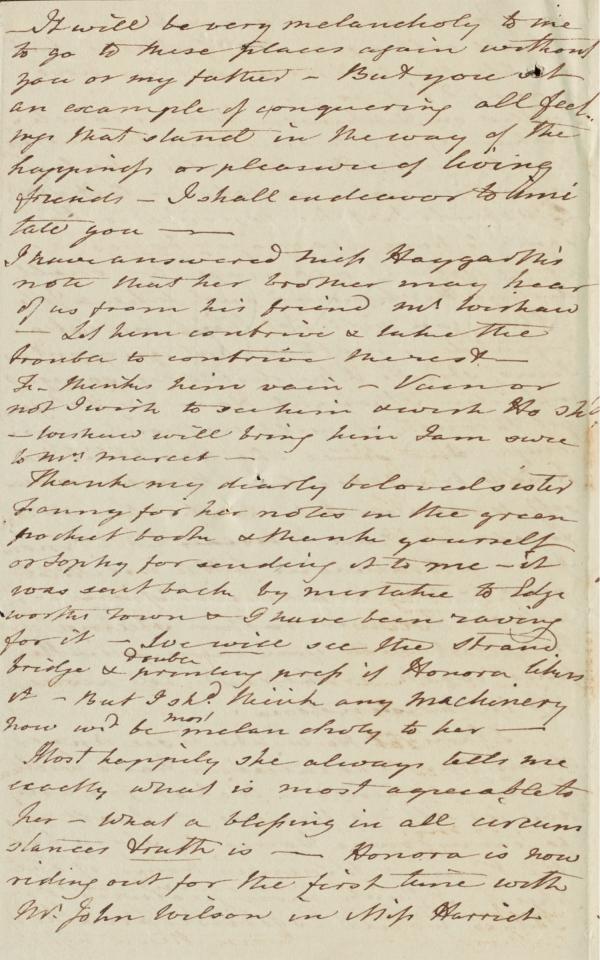 – It will be very melancholy to me
to go to these places again without
you or my father – But you set
an example of conquering all feel-
ings that stand in the way of the
happiness or pleasure of living
friends – I shall endeavor to imi
tate you —
I have answered Miss Haygarth's
note that her brother may hear
of us from his friend Mr Wishaw
– Let him contrive & take the
trouble to contrive the rest –
F– thinks him vain – Vain or
not I wish to see him & wish Ho shd
– Wishaw will bring him I am sure
to Mrs Marcet –
Thank my dearly beloved sister
Fanny for her notes in the green
pocket book & thank yourself
or Sophy for sending it to me – it
was sent back by mistake to Edge
worths Town & I have been raving
for it – We will see the Strand
bridge & double printing press if Honora likes
it – But I shd think any machinery
now wd be most melancholy to her —
Most happily she always tells me
exactly what is most agreeable to
her – What a blessing in all circum
stances truth is — Honora is now
riding out for the first time with
Mr John Wilson in Miss Harriet